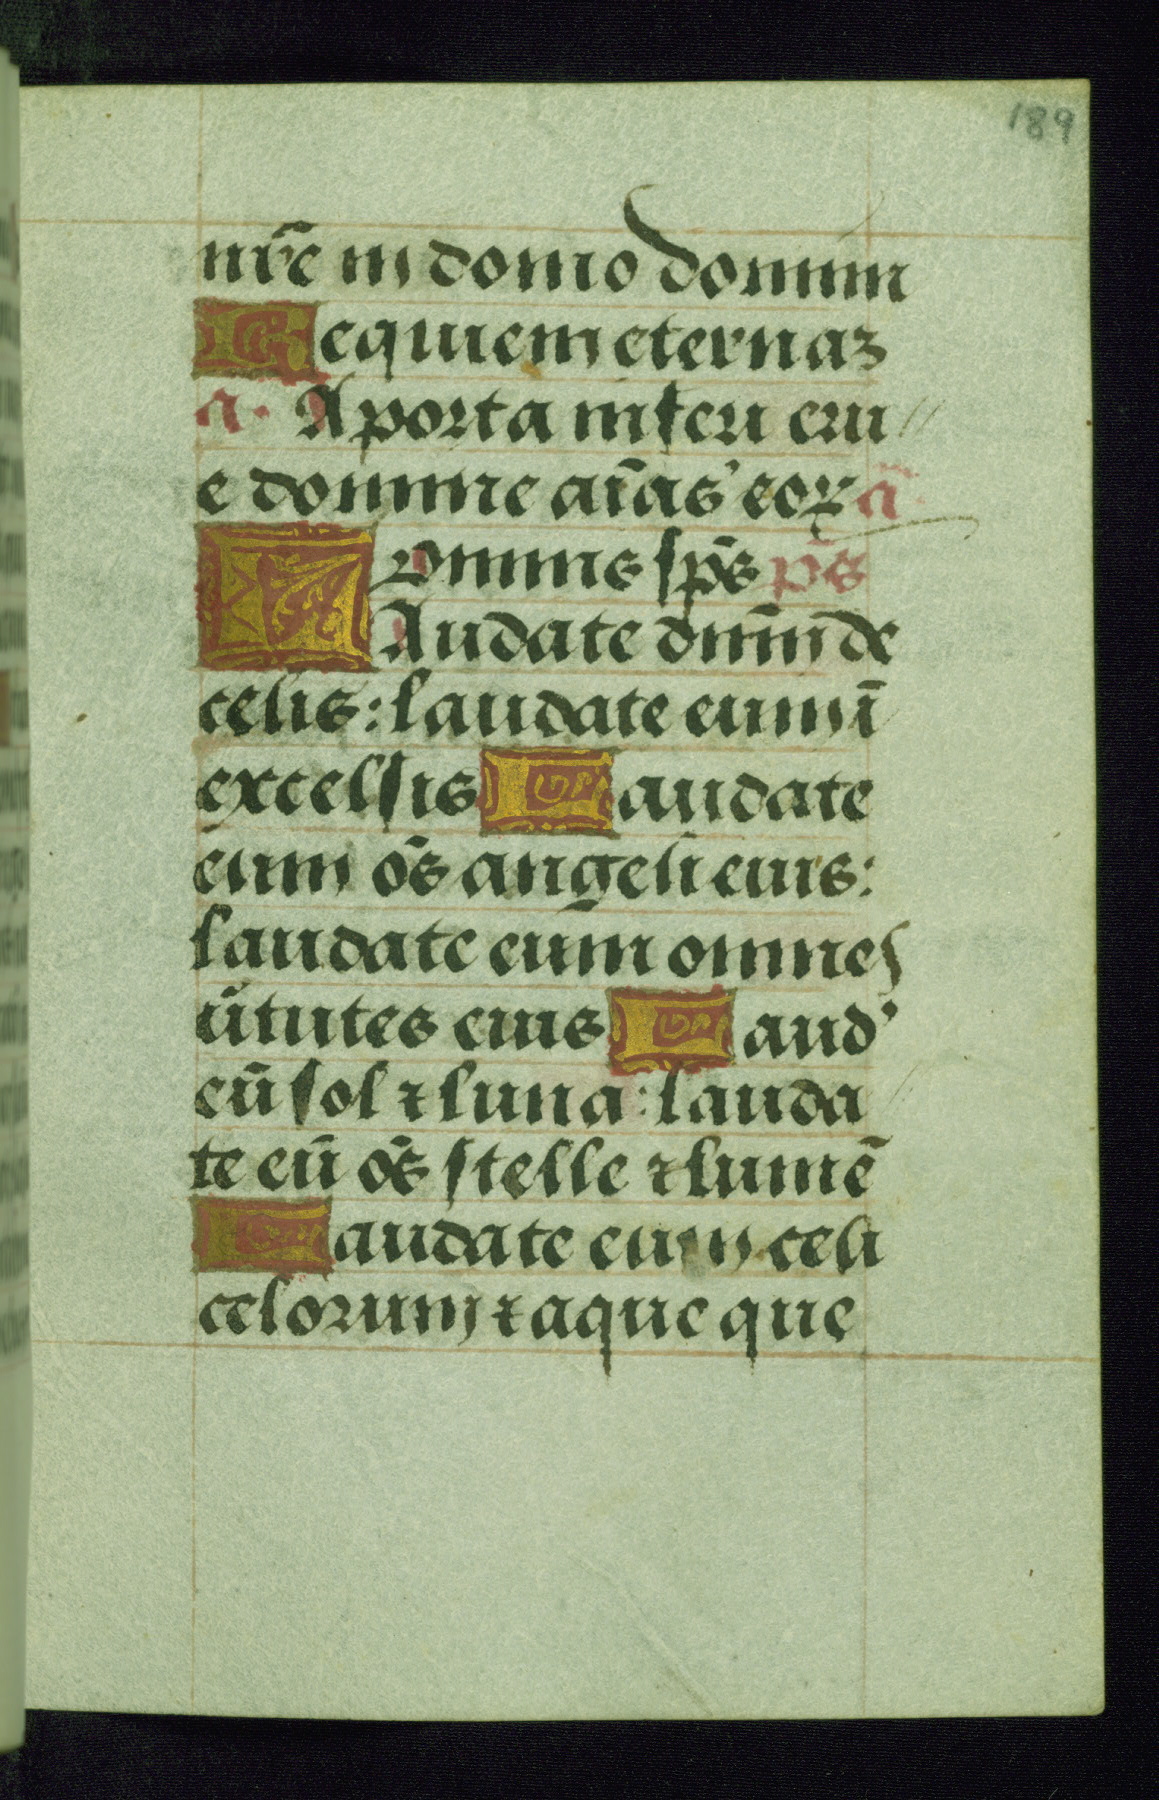 189
nr̄e in domo domini
Requiem eternaꝫ
a. A porta inferi eru
e domine aīas eoꝝ ā
Omnis sp̄s ps̄
LAudate dn̄m de
celis: laudate eum ī
excelsis Laudate
eum oēs angeli eius:
laudate eum omnes
v̄tutes eius Laud'
eū sol ⁊ luna: lauda
te eū oēs stelle ⁊ lumē
Laudate eum celi
celorum ⁊ aque que